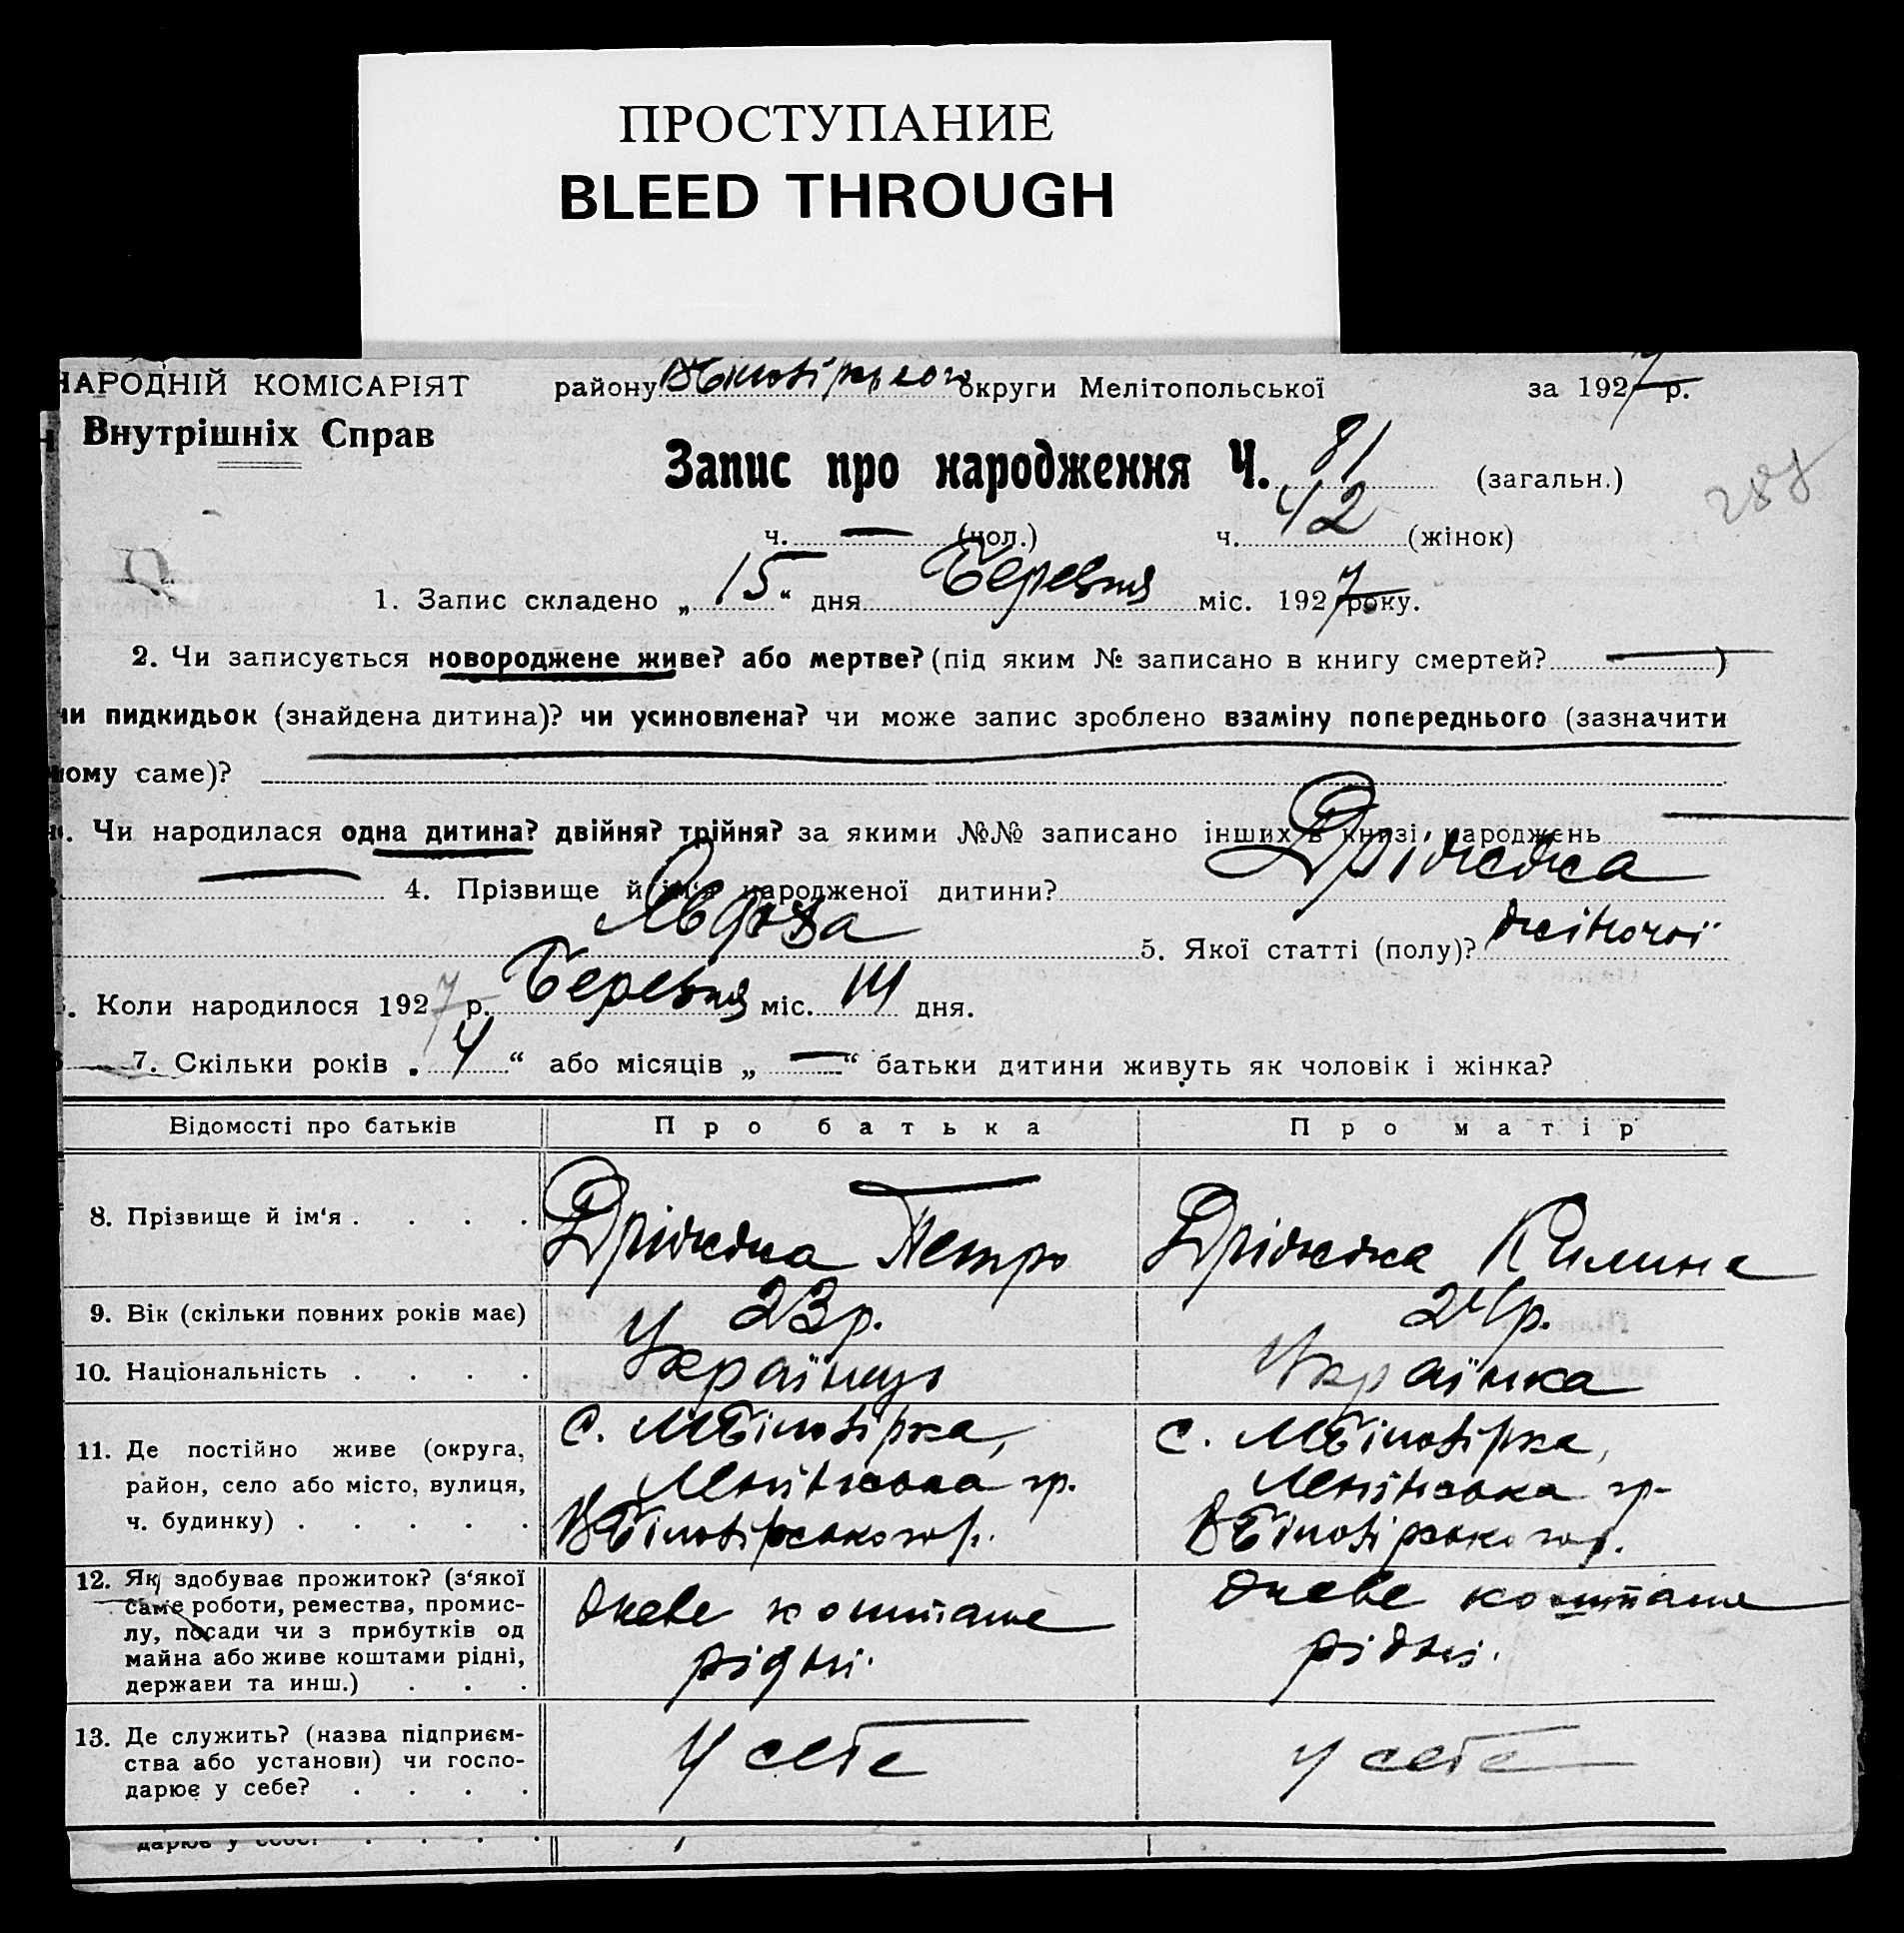 ПРОСТУПАНИЕ
BLEED THROUGH
НАРОДНІЙ КОМІСАРІЯТ району округи Мелітопольської за 1927 р.
Внутрішніх Справ
Запис про народження Ч. 81 (загальн.)
287
ч. — (чол.) ч. 42 (жінок)
1. Запис складено „ 15 “ дня Березня міс. 1927 року.
2. Чи записується новороджене живе? або мертве? (під яким № записано в книгу смертей? — )
чи пидкидьок (знайдена дитина)? чи усиновлена? чи може запис зроблено взаміну попереднього (зазначити
чому саме)?
Чи народилася одна дитина? двійня? трійня? за якими №№ записано інших в книзі народжень —
— 4. Прізвище й ім'я народженої дитини? Дріжжа
5. Якої статті (полу)? жіночої
Коли народилося 1927 р. Березня міс. 14 дня.
7. Скільки років „ 4 “ або місяців „ — “ батьки дитини живуть як чоловік і жінка?
Відомості про батьків Про батька Про матір
8. Прізвище й ім‘я . . . . Дріжжа Петро Дріжжа Килина
9. Вік (скільки повних років має) 23 р. 24 р.
10. Національність . . . . Українець Українка
11. Де постійно живе (округа, район, село або місто, вулиця, ч. будинку) . . . . .
с. МБілозірка,
Ленінська гр.
ВБілозірського р.
с. МБілозірка,
Ленінська гр.
ВБілозірського р.
12. Як здобуває прожиток? (з‘якої
саме роботи, ремества, промис-
лу, посади чи з прибутків од
майна або живе коштами рідні,
держави та инш.) . . .
живе коштами
рідні.
живе коштами
рідні.
13. Де служить? (назва підприєм-
ства або установи) чи госпо-
дарює у себе? . . . .
у себе
у себе
дарює у себе? . . . .